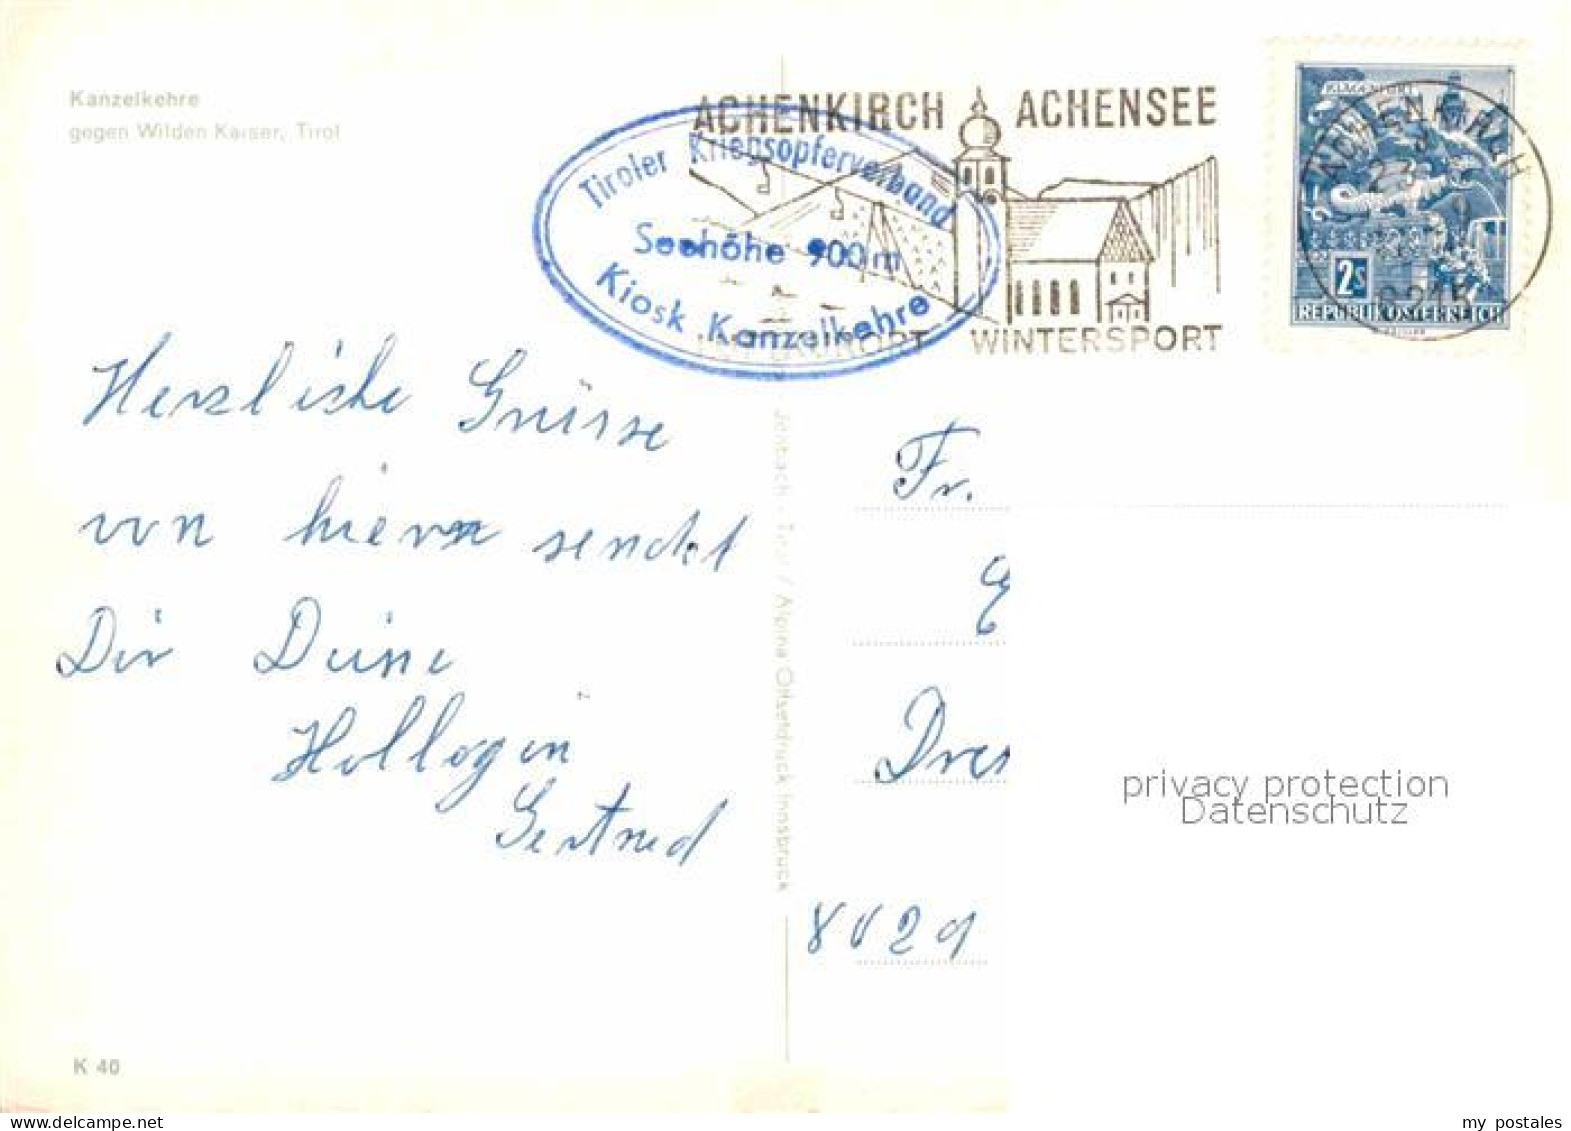 Kanzelkehre
gegen Wilden Kaiser, Tirol
ACHENKIRCH ACHENSEE
WINTERSPORT
Tiroler Kriegsopferverband
Seehöhe 900 m
Kiosk Kanzelkehre
KLAGENFURT
ACHENKIRCH
23.
6215
2S
REPUBLIK ÖSTERREICH
Herzliche Grüsse
von hier sendet
Dir Deine
Gertrud
Fr.
Dres
8029
Jenbach - Tirol / Alpina Offsetdruck Innsbruck
K 40
privacy protection
Datenschutz
my postales